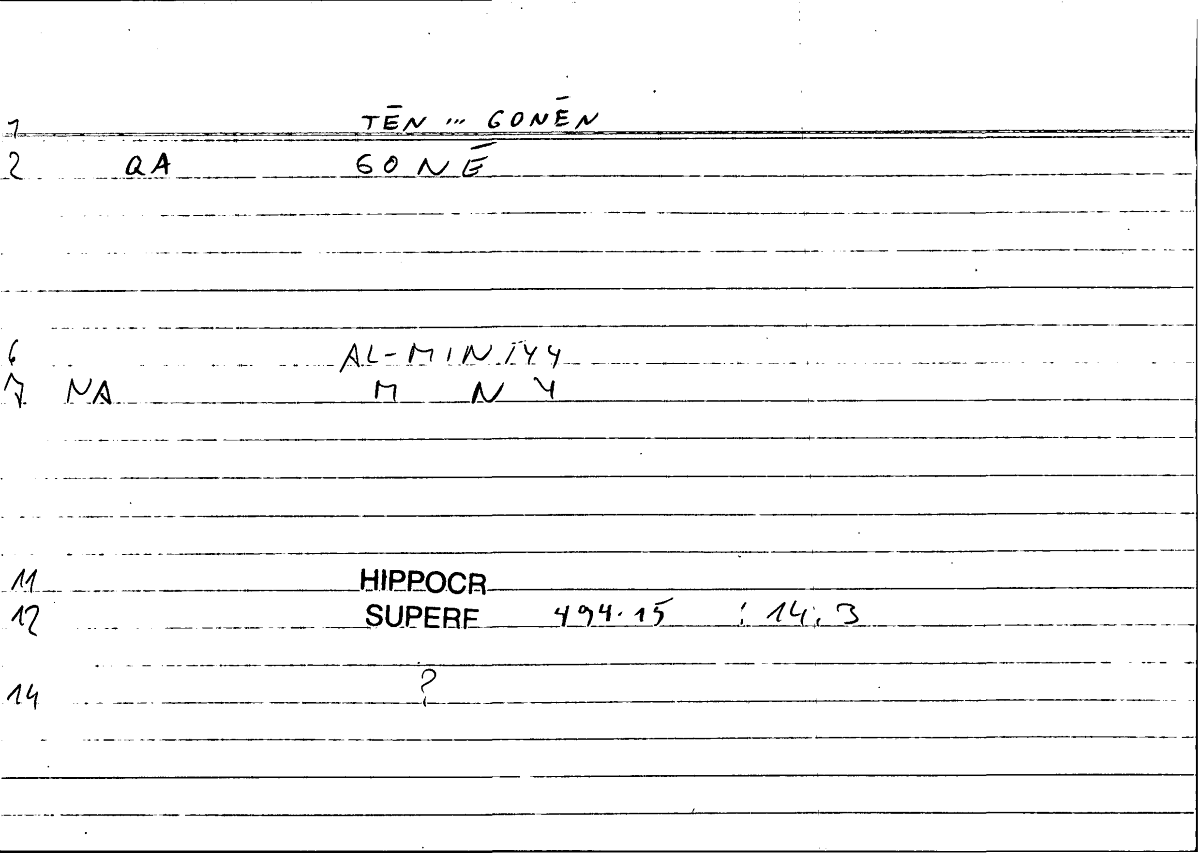 1 TĒN ... GONĒN
2 QA GONĒ
6 AL-MINĪYY
7 NA M N Y
11 HIPPOCR
12 SUPERF 494.15 : 14.3
14 ?